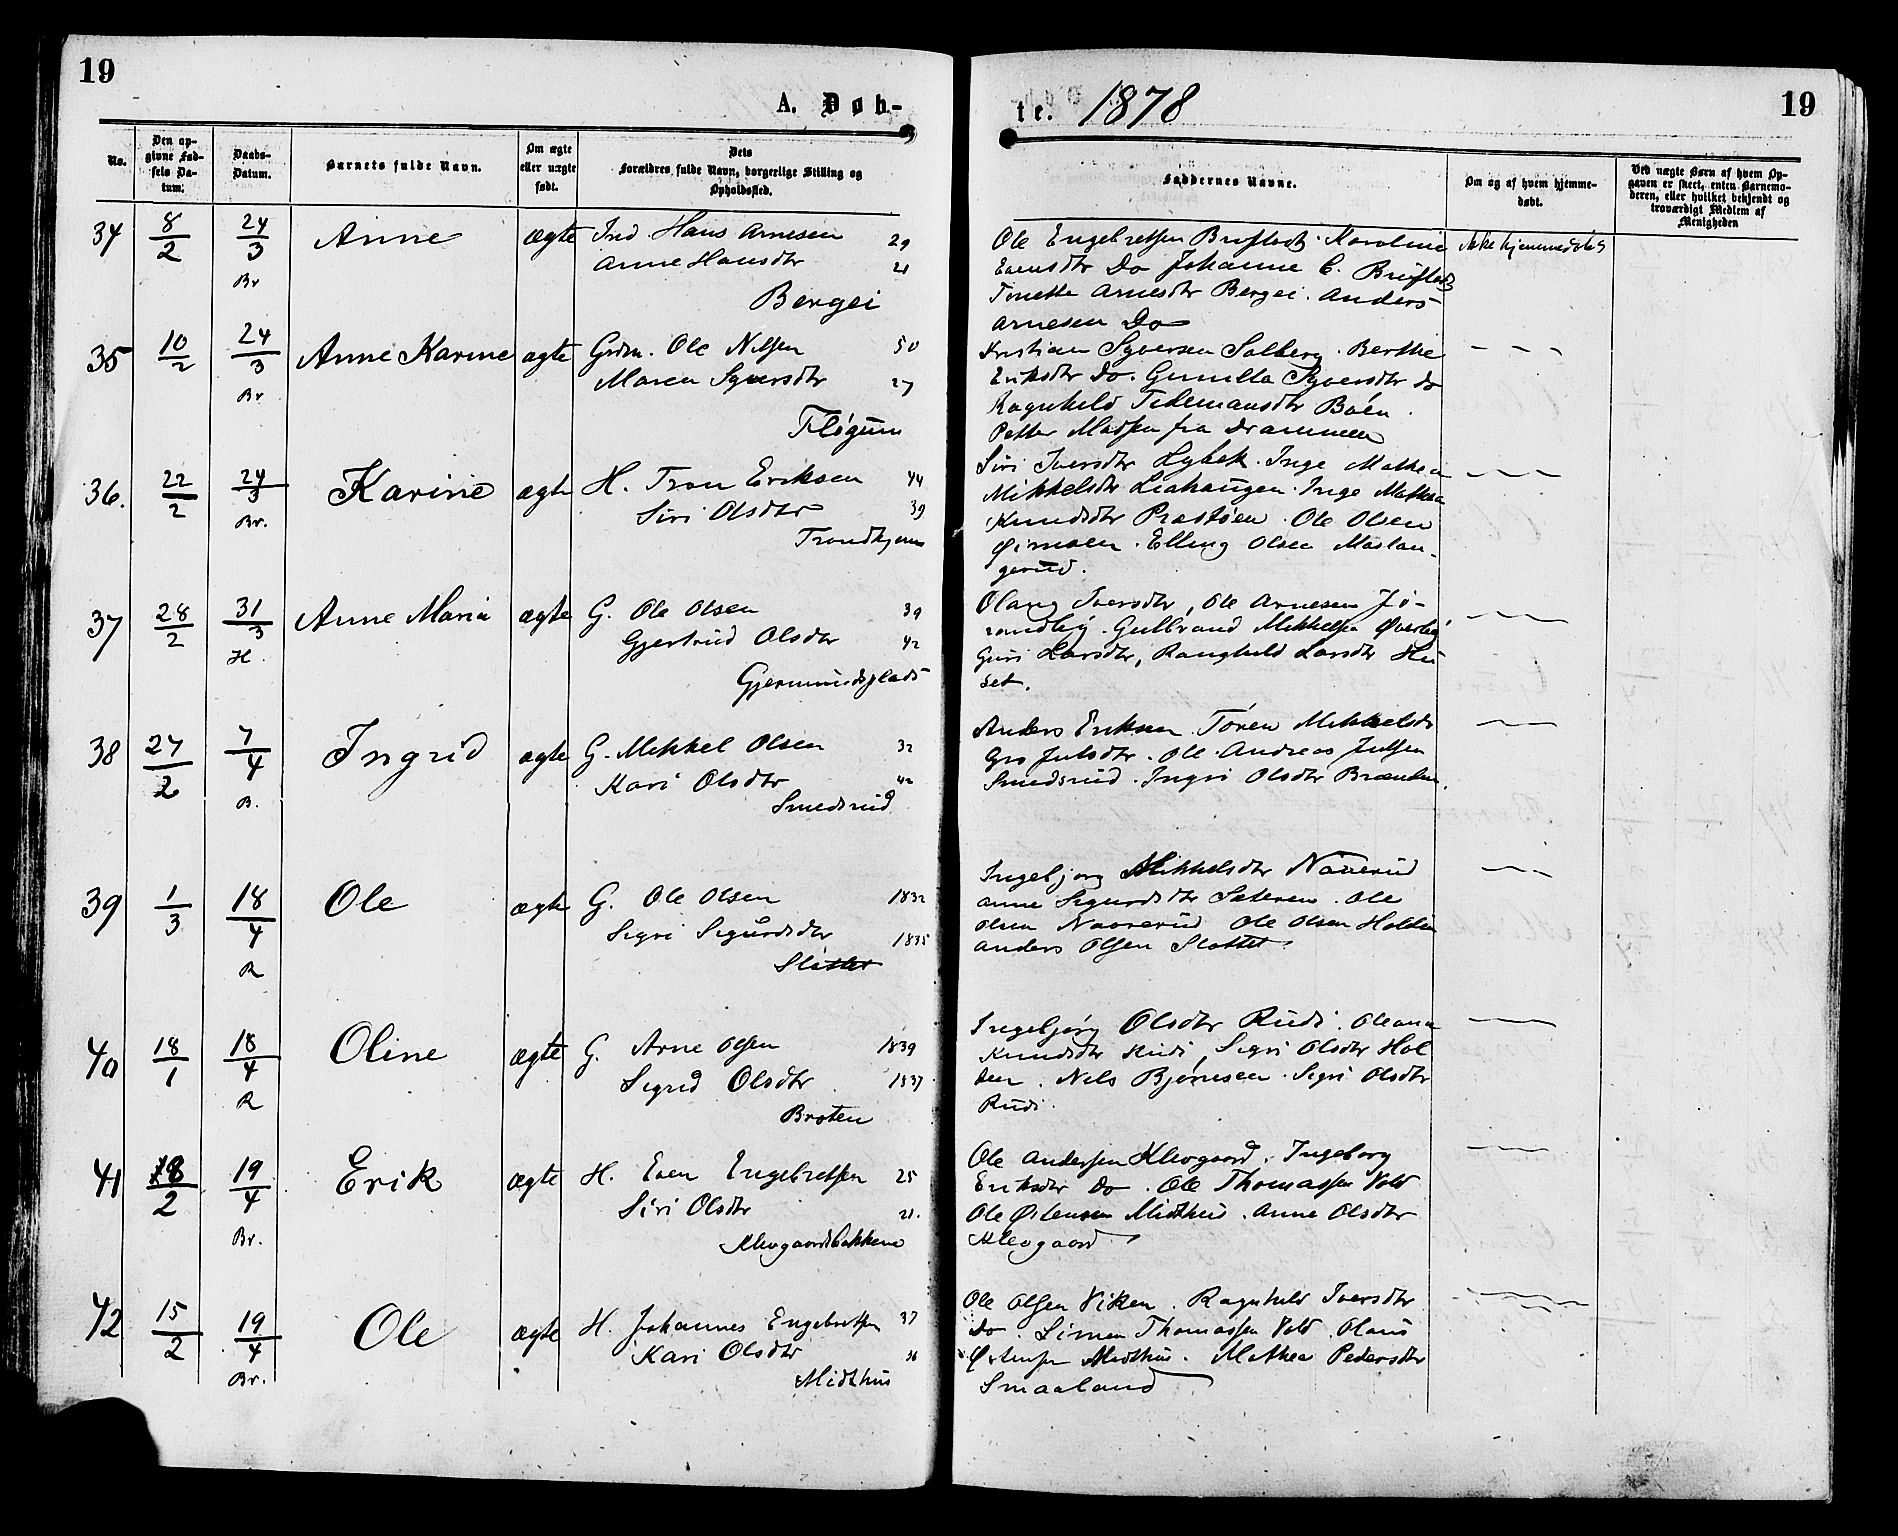 19
A. Døb-
te. 1878
19
No.
Den op-
givne Fød-
sels Da-
tum.
Daabs-
Datum.
Barnets fulde Navn.
Om ægte
eller uægte
født.
Dets
Forældres fulde Navn, borgerlige Stilling og
Opholdssted.
Faddernes Navne.
Om og af hvem hjemme-
døbt.
Ved uægte Børn af hvem Op-
gaven er skeet, enten Barnemo-
deren, eller hvilket bekjendt og
troværdigt Medlem af
Menigheden
34 8/2 24/3 Br Anne ægte Ind Hans Arnesen 29
Anne Hansdtr 21
Bergei
Ole Engebretsen Bruflodt. Karoline
Evensdtr Do Johanne E. Bruflodt
Tonetta Arnesdtr Bergei. Anders
Arnesen Do
ikke hjemmedøbt
35 10/2 24/3 Br Anne Karine ægte Grdm. Ole Nilsen 50
Maren Syversdtr 27
Fløgum
Kristian Syversen Solberg. Berthe
Eriksdtr Do. Gunilla Syversdtr do
Ragnhild Tidemansdtr Bøen.
Petter Madsen fra Drammen
— — —
36. 22/2 24/3 Br. Karine ægte H. Tron Eriksen 44
Siri Olsdtr 39
Trondhjem
Siri Iversdtr Lybek. Inge Mathea
Mikkelsdtr Liahaugen. Inge Mathea
Knudsdtr Præstøen. Ole Olsen
Elling Olsen Maslan-
gerud.
37 28/2 31/3 H. Anne Maria ægte G. Ole Olsen 39
Gjertrud Olsdtr 42
Gjermundsplads
Olaug Iversdtr, Ole Arnesen Jø-
randby. Gulbrand Mikkelsen Øverby
Guri Larsdtr, Ranghild Larsdtr Hu-
set.
38 27/2 7/4 B. Ingrid ægte G. Mikkel Olsen 32
Kari Olsdtr 42
Smedsrud
Anders Eriksen. Toren Mikkelsdr
Gro Julsdtr. Ole Andreas Julsen
Smedsrud. Ingri Olsdtr Brænden.
39 1/3 18/4 R Ole ægte G. Ole Olsen 1832
Sigri Sigurdsdtr 1835
Slåttet
Ingebjørg Mikkelsdtr Naverud
Anne Sigurdsdtr Sæteren. Ole
Olsen Naverud Ole Olsen Holden
Anders Olsen Slottet
40 18/1 18/4 R Oline ægte G. Arne Olsen 1839
Sigrid Olsdtr 1837
Broten
Ingebjørg Olsdtr Rudi. Oleana
Knudsdtr Rudi, Sigri Olsdtr Hol
den. Nels Bjørnsen. Sigri Olsdtr
Rudi.
41 18/2 19/4 Br. Erik ægte H. Even Engebretsen 25
Siri Olsdtr 21.
Klevgaardsbakkene
Ole Andersen Klevgaard. Ingeborg
Eriksdtr Do. Ole Thomassen Vold
Ole Østensen Midthus. Anne Olsdtr
Klevgaard
42 15/2 19/4 Br. Ole ægte H. Johannes Engebretsen 37
Kari Olsdtr 36
Midthus
Ole Olsen Viken. Ragnhild Iversdtr
Do. Simen Thomassen Vold. Olaus
Østensen Midthus. Mathea Pedersdtr
Smaaland